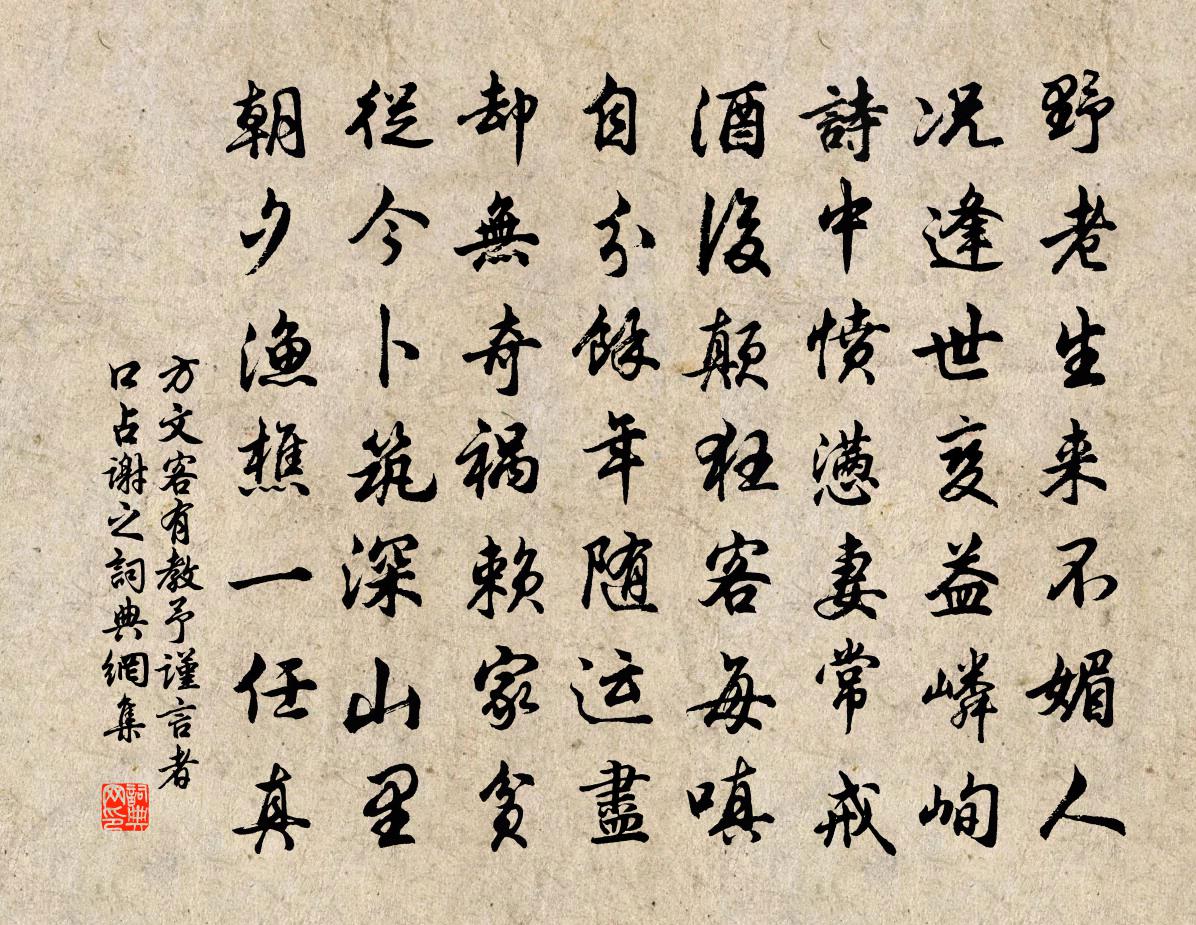 野老生来不媚人
况逢世变益嶙峋
詩中憤懑妻常戒
酒後顛狂客每嗔
自分餘年随运盡
却無奇祸赖家贫
從今卜筑深山里
朝夕漁樵一任真
方文客有教予谨言者
口占谢之詞典網集
詞典网印